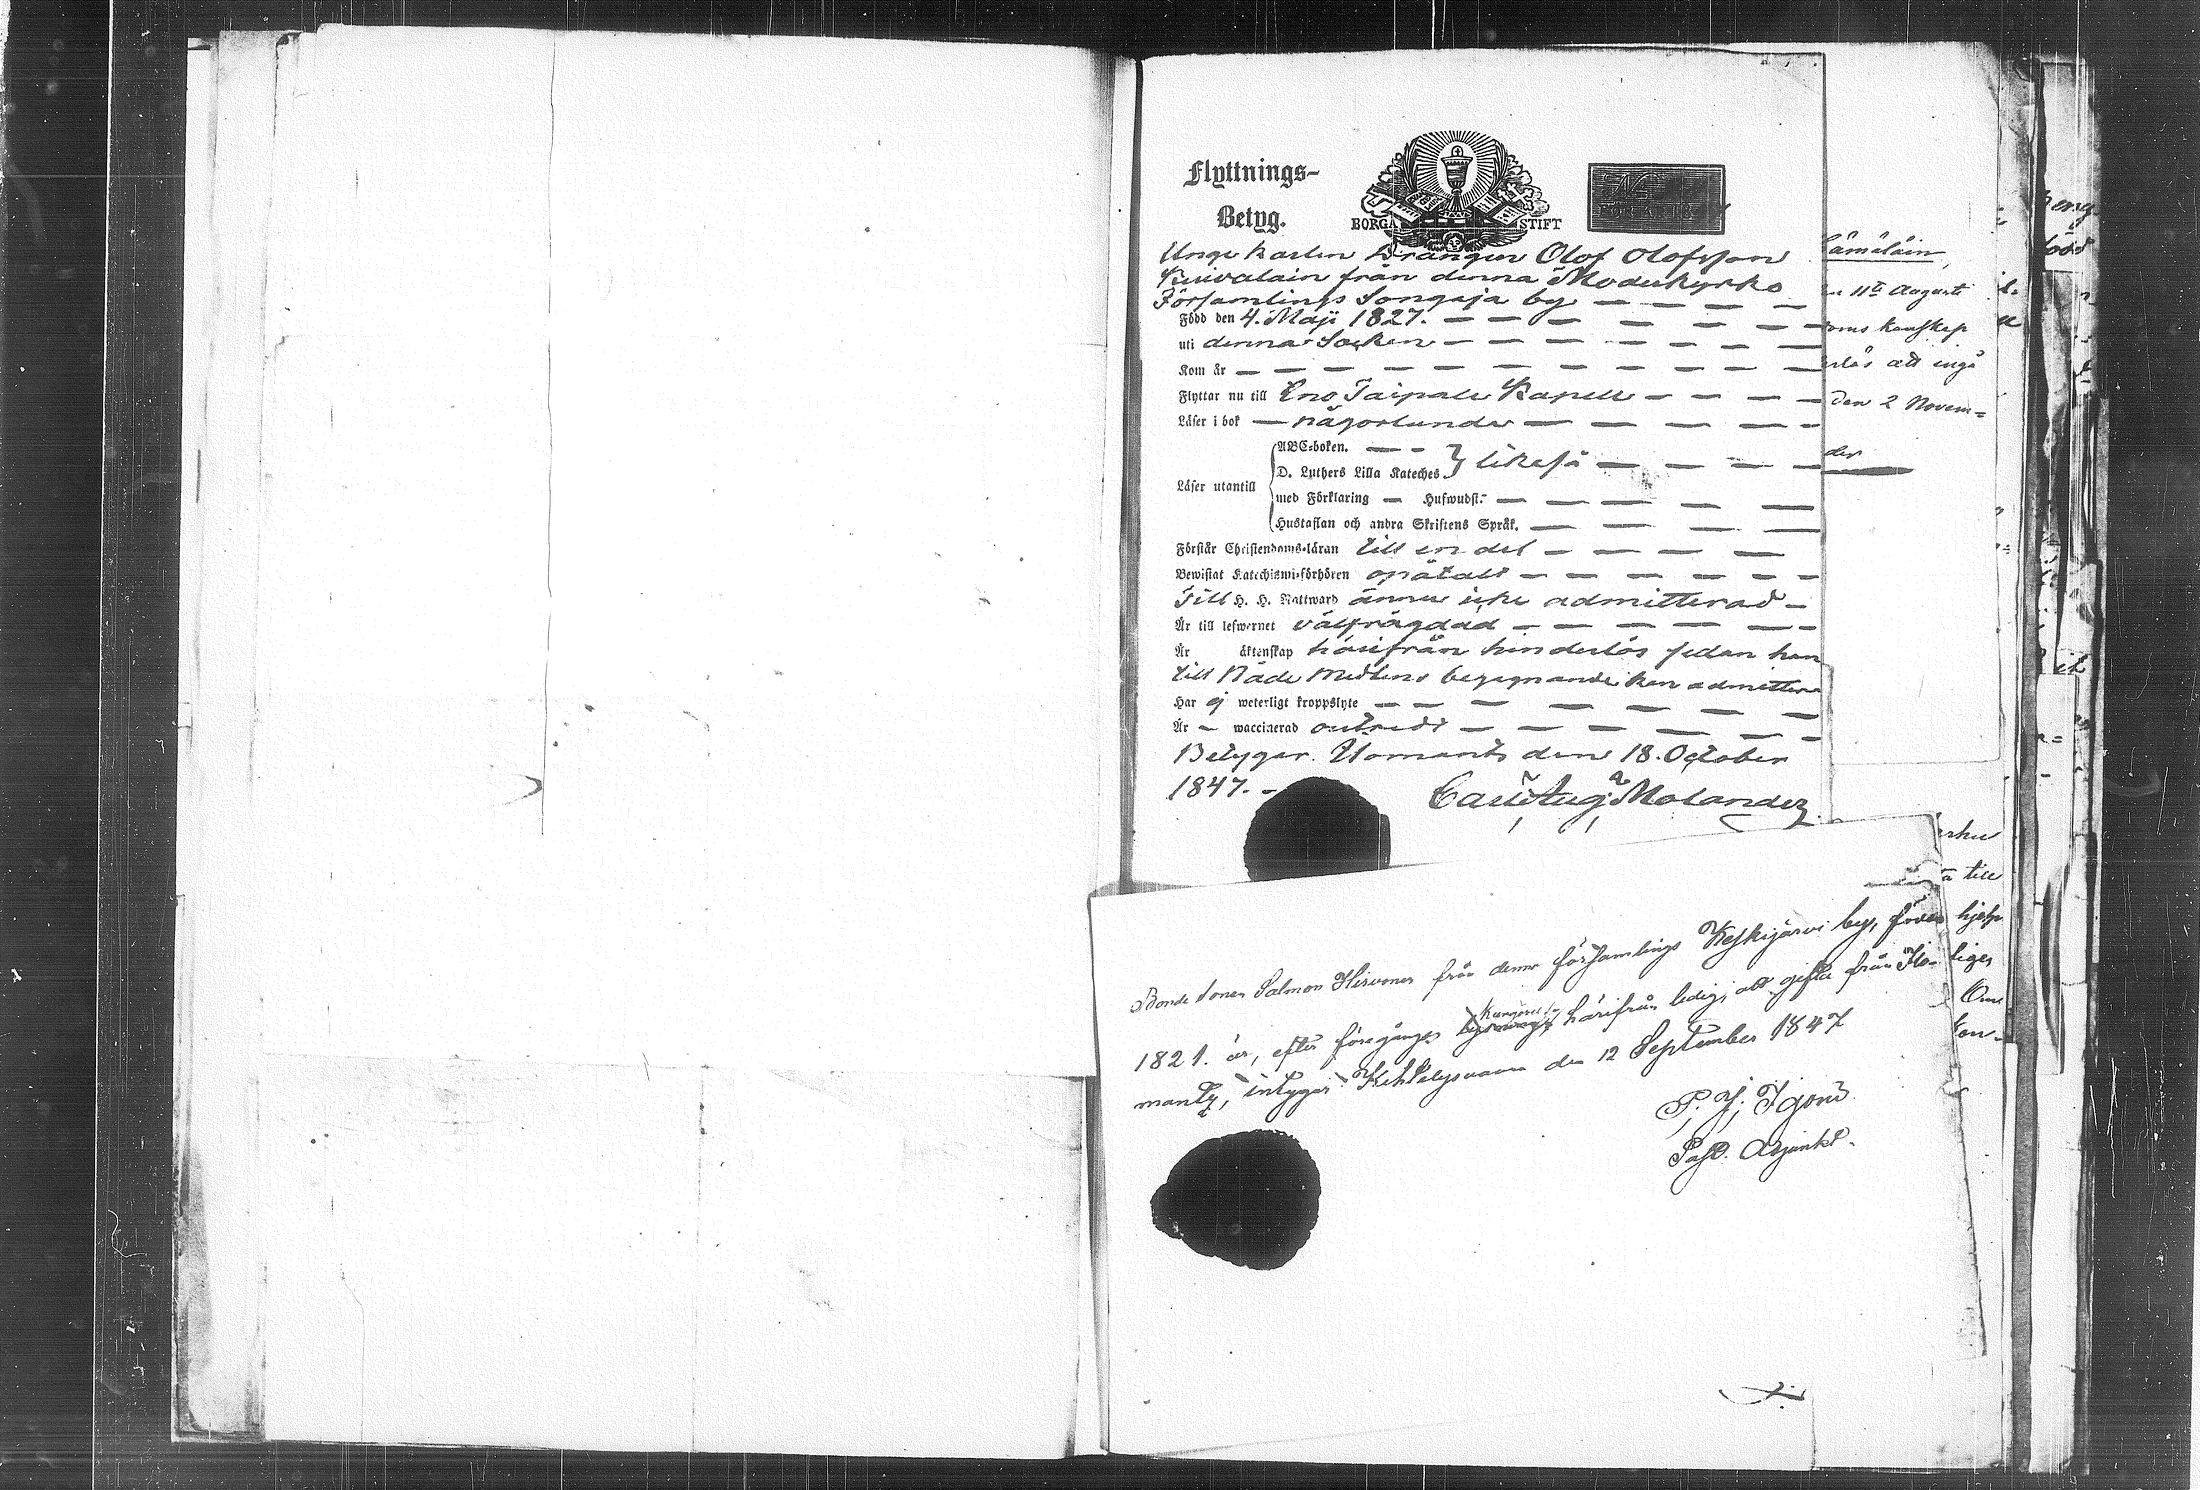 Flyttnings-
Betyg.
BORGÅ STIFT
Unge Karlen Drängen Olof Olofsson
Kuivalain från denna Moderkyrko
Församlings Sonqaja by
Född den 4. Maji 1827.
uti denna Socken
Kom år
Flyttar nu till Eno Taipale Kapell
Läser i bok någorlunda
ABC-boken.
D. Luthers Lilla Kateches likaså
Läser utantill
med Förklaring Hufwudst.
Hustaflan och andra Skriftens Språk.
Förstår Christendoms-läran till en del
Bewistat Katechismi-förhören opåtalt
Till H. H. Nattward ännu icke admitterad
Är till lefwernet välfrägdad
Är äktenskap härifrån hinderlös sedan han
till Nåde Medlens begagnande kan admitteras
Har ej weterligt kroppslyte
Är waccinerad
Betygar. Ilomants den 18. October
1847.
Carl Aug. Molander
ämäläin,
11te Augusti
oms kunskap
erlös att ingå
den 2 Novem=
der
Bonde Sonen Salmon Hirvonen från denna församlings Keskijärvi by, född
1821. år, efter föregången härifrån ledig, att gifta från Ilo-
mants, intygar Kihtelysvaara den 12 September 1847
Past. Adjunkt.
till
hjelp
liges